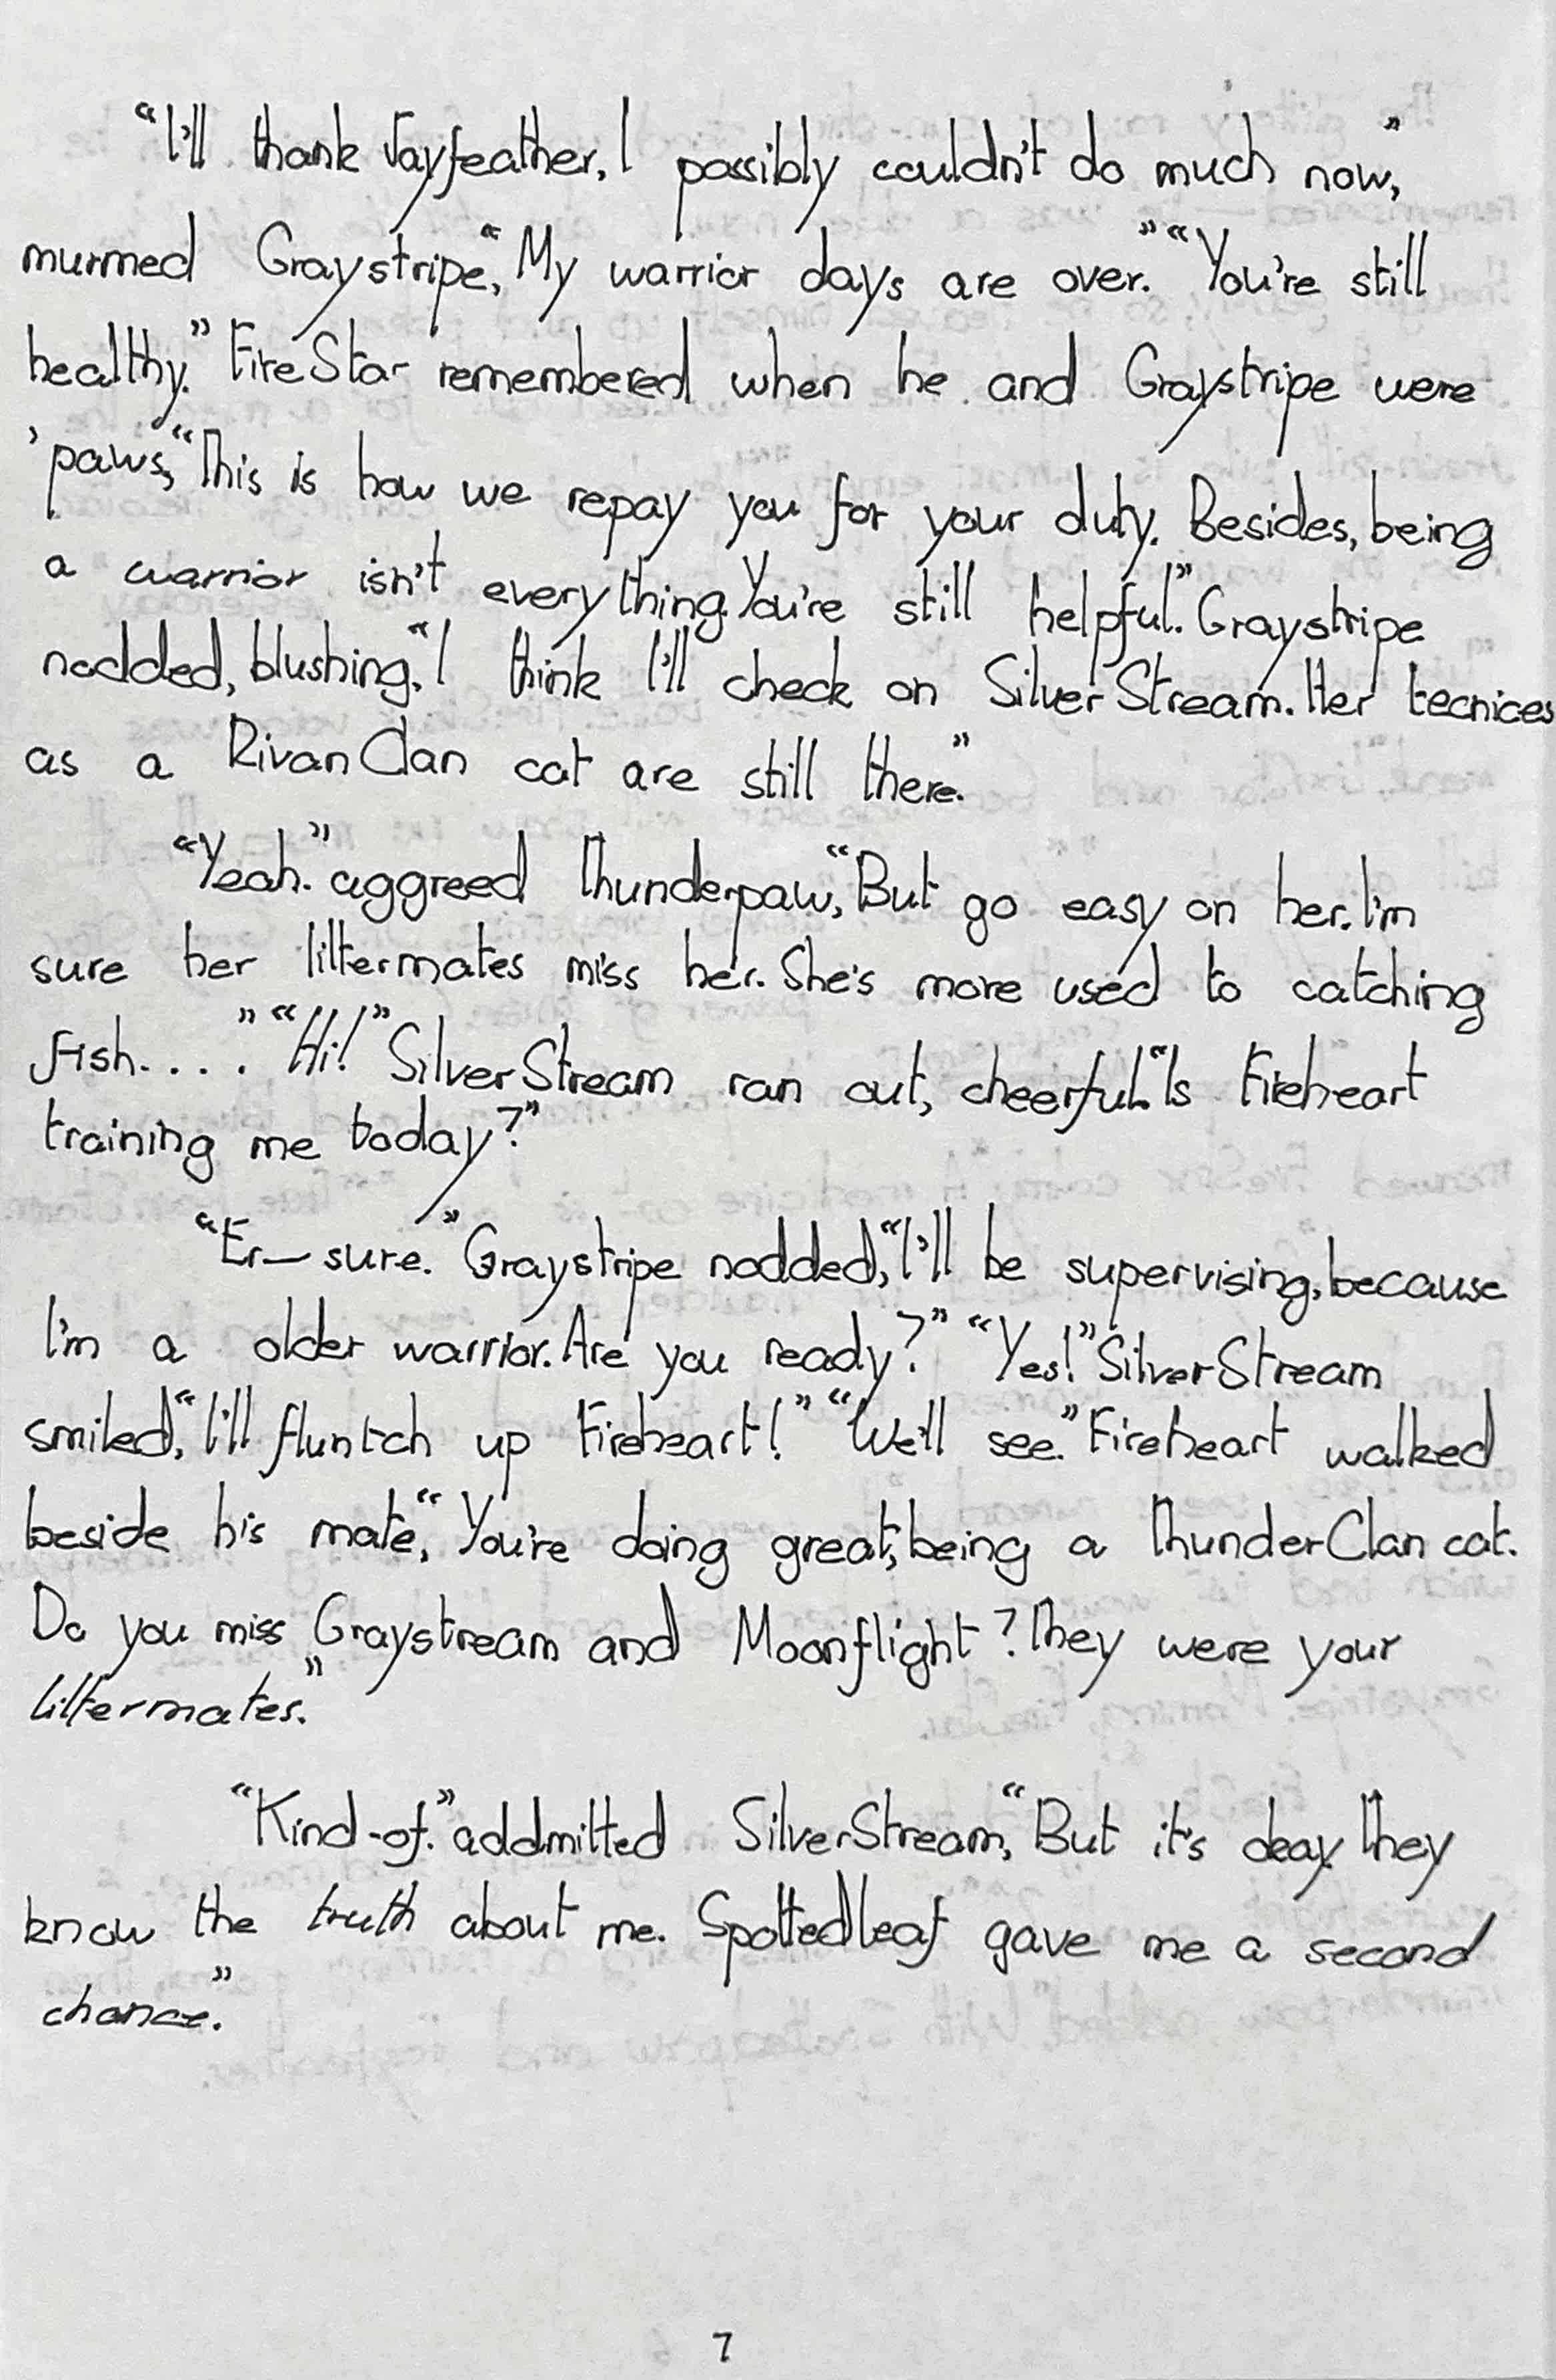 “I'll thank Jayfeather, I possibly couldn't do much now,”
murmed Graystripe, “My warrior days are over.” “You're still
healthy.” FireStar remembered when he and Graystripe were
'paws, “This is how we repay you for your duty. Besides, being
a warrior isn't everything. You're still helpful.” Graystripe
nodded, blushing, “I think I'll check on SilverStream. Her tecnices
as a RivanClan cat are still there.”
“Yeah.” aggreed Thunderpaw, “But go easy on her. I'm
sure her littermates miss her. She's more used to catching
fish. . . .” “Hi!” SilverStream ran out, cheerful. “Is Fireheart
training me today?”
“Er— sure.” Graystripe nodded, “I'll be supervising, because
I'm a older warrior. Are you ready?” “Yes!” SilverStream
smiled, “I'll fluntch up Fireheart!” “We'll see.” Fireheart walked
beside his mate, “You're doing great, being a ThunderClan cat.
Do you miss Graystream and Moonflight? They were your
littermates.”
“Kind-of.” addmitted SilverStream, “But it's okay. They
know the truth about me. Spottedleaf gave me a second
chance.”
7